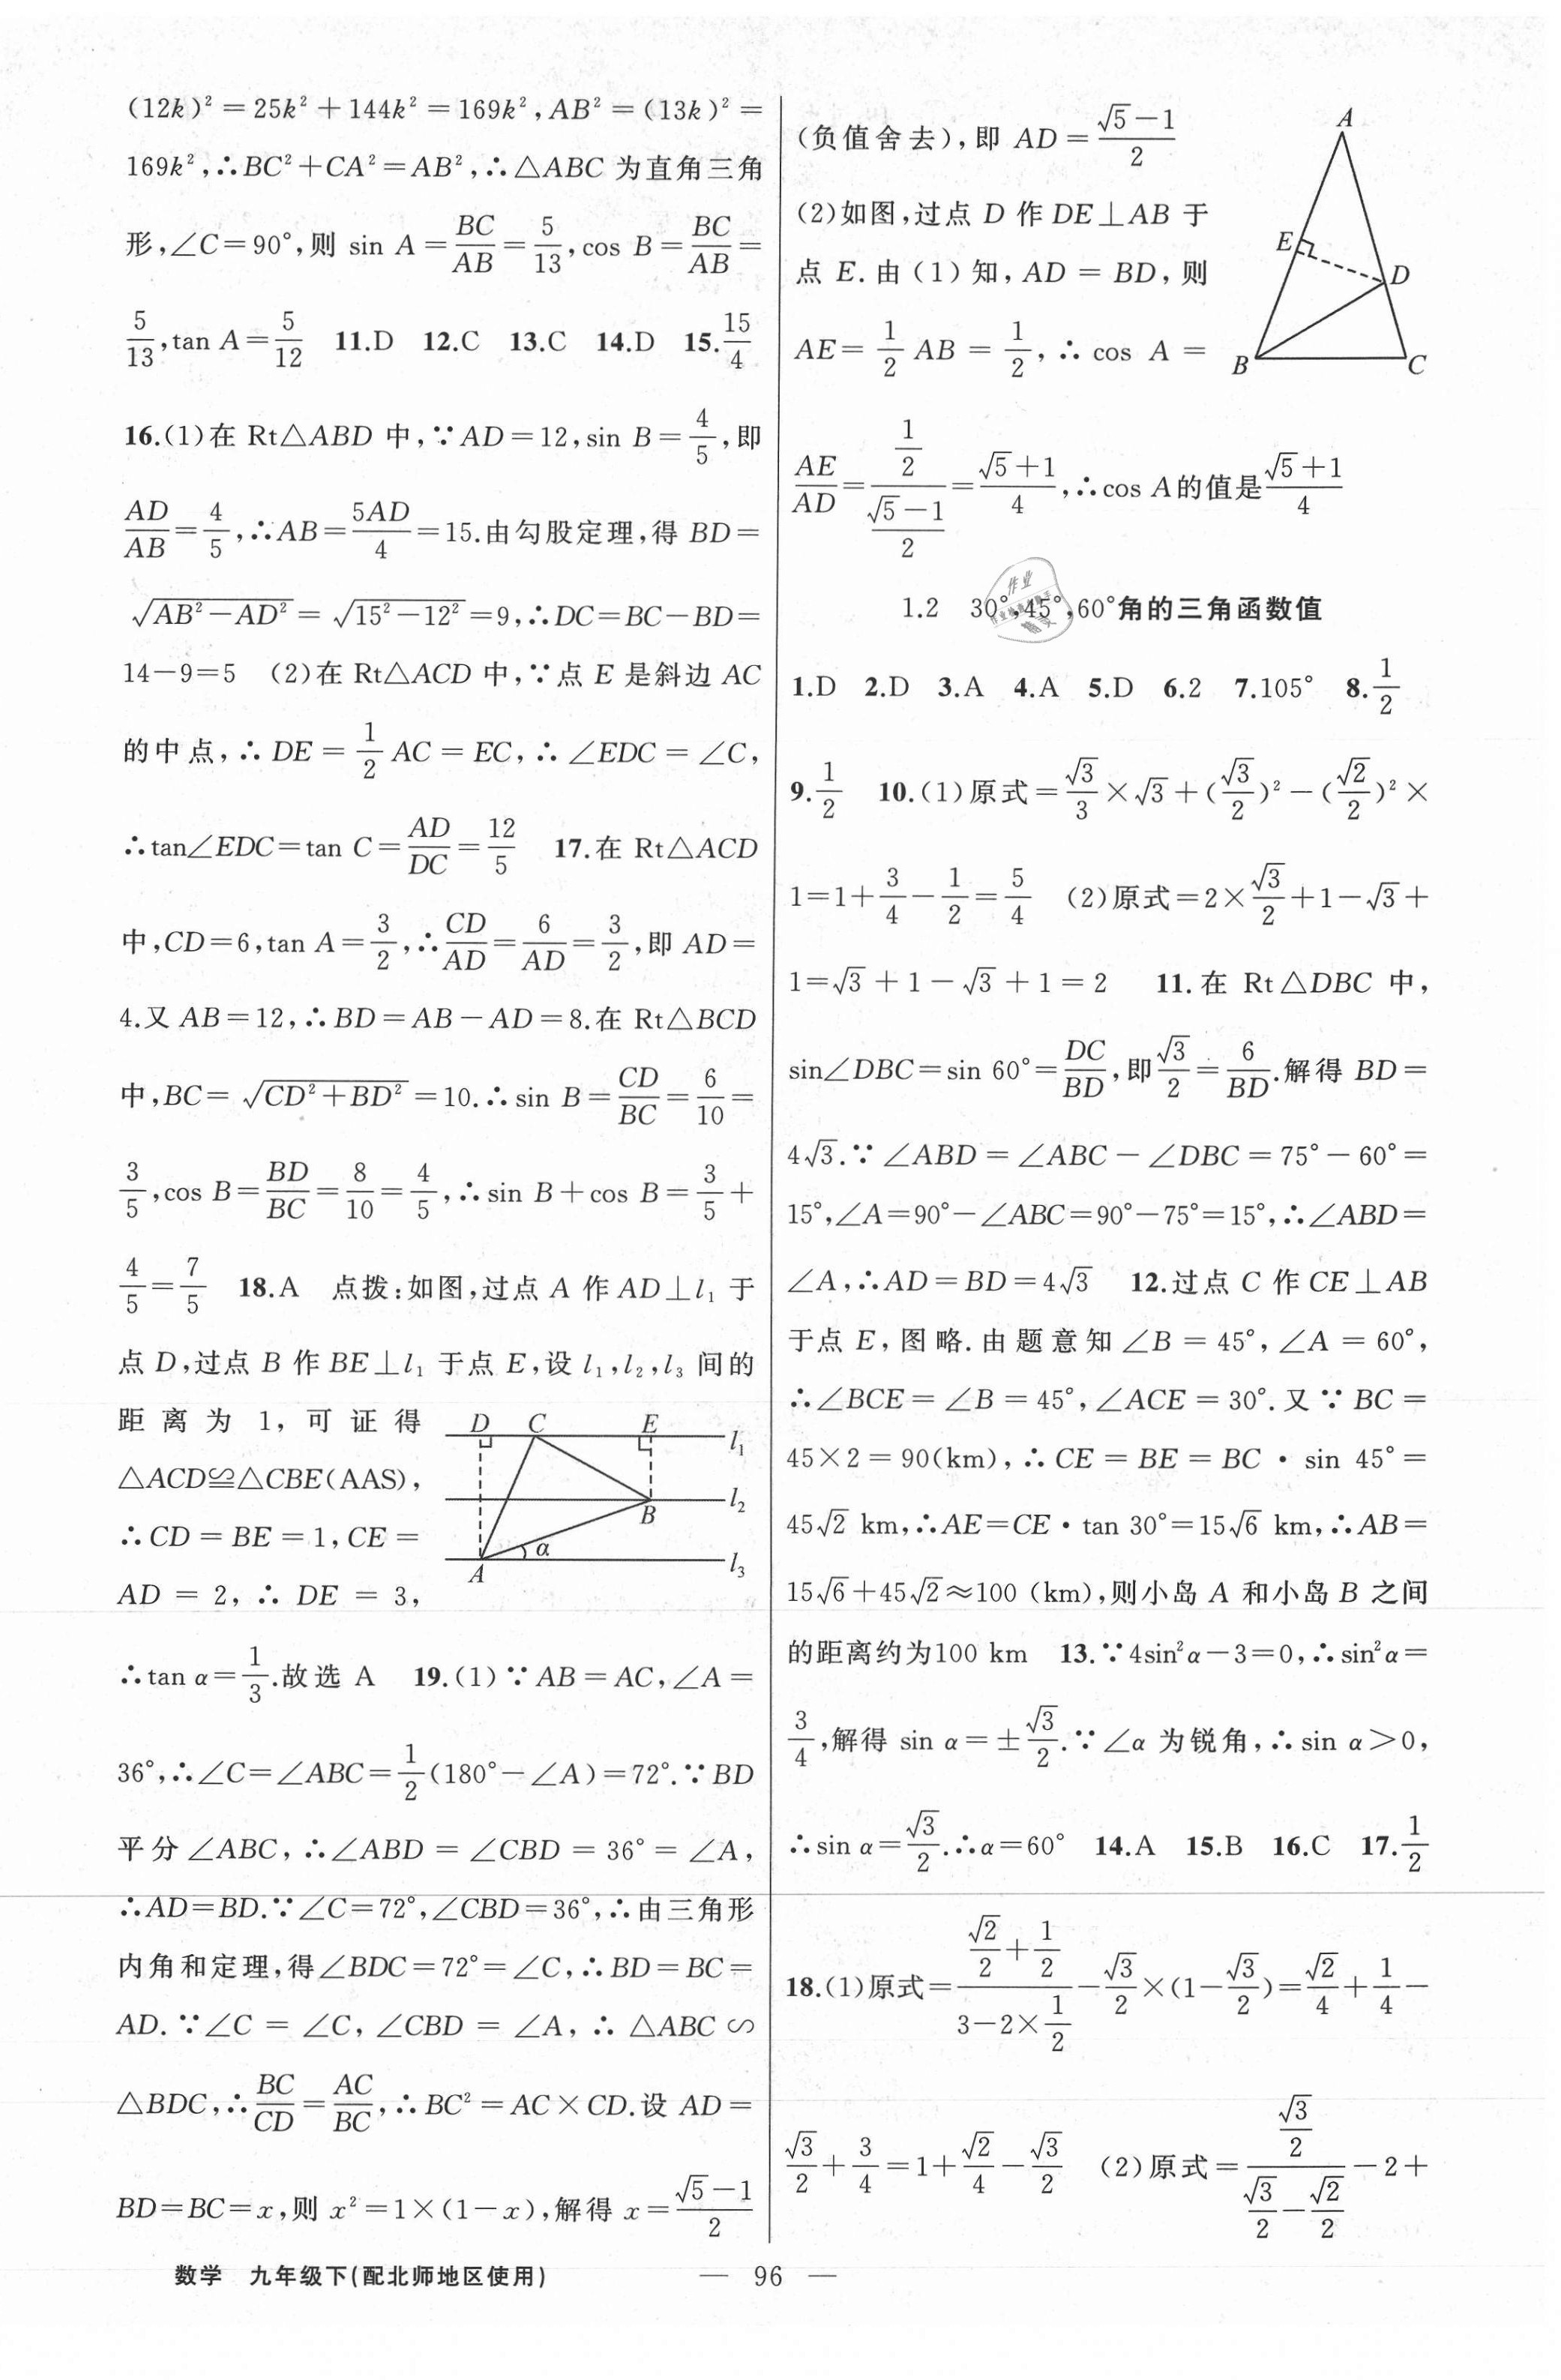 (12k)²=25k²+144k²=169k²,AB²=(13k)²=
169k²,∴BC²+CA²=AB²,∴△ABC 为直角三角
形,∠C=90°,则 sin A=BC/AB=5/13,cos B=BC/AB=
5/13,tan A=5/12 11.D 12.C 13.C 14.D 15.15/4
16.(1)在 Rt△ABD 中,∵AD=12,sin B=4/5,即
AD/AB=4/5,∴AB=5AD/4=15.由勾股定理,得 BD=
√(AB²-AD²)=√(15²-12²)=9,∴DC=BC-BD=
14-9=5 (2)在 Rt△ACD 中,∵点 E 是斜边 AC
的中点,∴DE=1/2 AC=EC,∴∠EDC=∠C,
∴tan∠EDC=tan C=AD/DC=12/5 17.在 Rt△ACD
中,CD=6,tan A=3/2,∴CD/AD=6/AD=3/2,即 AD=
4.又 AB=12,∴BD=AB-AD=8.在 Rt△BCD
中,BC=√(CD²+BD²)=10.∴sin B=CD/BC=6/10=
3/5,cos B=BD/BC=8/10=4/5,∴sin B+cos B=3/5+
4/5=7/5 18.A 点拨:如图,过点 A 作 AD⊥l₁ 于
点 D,过点 B 作 BE⊥l₁ 于点 E,设 l₁,l₂,l₃ 间的
距离为 1,可证得
△ACD≌△CBE(AAS),
∴CD=BE=1,CE=
AD=2,∴DE=3,
D C E l₁
l₂
B
α
l₃
A
∴tan α=1/3.故选 A 19.(1)∵AB=AC,∠A=
36°,∴∠C=∠ABC=1/2(180°-∠A)=72°.∵BD
平分∠ABC,∴∠ABD=∠CBD=36°=∠A,
∴AD=BD.∵∠C=72°,∠CBD=36°,∴由三角形
内角和定理,得∠BDC=72°=∠C,∴BD=BC=
AD.∵∠C=∠C,∠CBD=∠A,∴△ABC∽
△BDC,∴BC/CD=AC/BC,∴BC²=AC×CD.设 AD=
BD=BC=x,则 x²=1×(1-x),解得 x=(√5-1)/2
(负值舍去),即 AD=(√5-1)/2
(2)如图,过点 D 作 DE⊥AB 于
点 E.由(1)知,AD=BD,则
AE=1/2 AB=1/2,∴cos A=
A
E
D
B
C
AE/AD=(1/2)/((√5-1)/2)=(√5+1)/4,∴cos A的值是(√5+1)/4
1.2 30°,45°,60°角的三角函数值
1.D 2.D 3.A 4.A 5.D 6.2 7.105° 8.1/2
9.1/2 10.(1)原式=√3/3×√3+(√3/2)²-(√2/2)²×
1=1+3/4-1/2=5/4 (2)原式=2×√3/2+1-√3+
1=√3+1-√3+1=2 11.在 Rt△DBC 中,
sin∠DBC=sin 60°=DC/BD,即√3/2=6/BD.解得 BD=
4√3.∵∠ABD=∠ABC-∠DBC=75°-60°=
15°,∠A=90°-∠ABC=90°-75°=15°,∴∠ABD=
∠A,∴AD=BD=4√3 12.过点 C 作 CE⊥AB
于点 E,图略.由题意知∠B=45°,∠A=60°,
∴∠BCE=∠B=45°,∠ACE=30°.又∵BC=
45×2=90(km),∴CE=BE=BC·sin 45°=
45√2 km,∴AE=CE·tan 30°=15√6 km,∴AB=
15√6+45√2≈100 (km),则小岛 A 和小岛 B 之间
的距离约为100 km 13.∵4sin²α-3=0,∴sin²α=
3/4,解得 sin α=±√3/2.∵∠α 为锐角,∴sin α>0,
∴sin α=√3/2.∴α=60° 14.A 15.B 16.C 17.1/2
18.(1)原式=(√2/2+1/2)/(3-2×1/2)-√3/2×(1-√3/2)=√2/4+1/4-
√3/2+3/4=1+√2/4-√3/2 (2)原式=(√3/2)/(√3/2-√2/2)-2+
数学 九年级下(配北师地区使用)
— 96 —